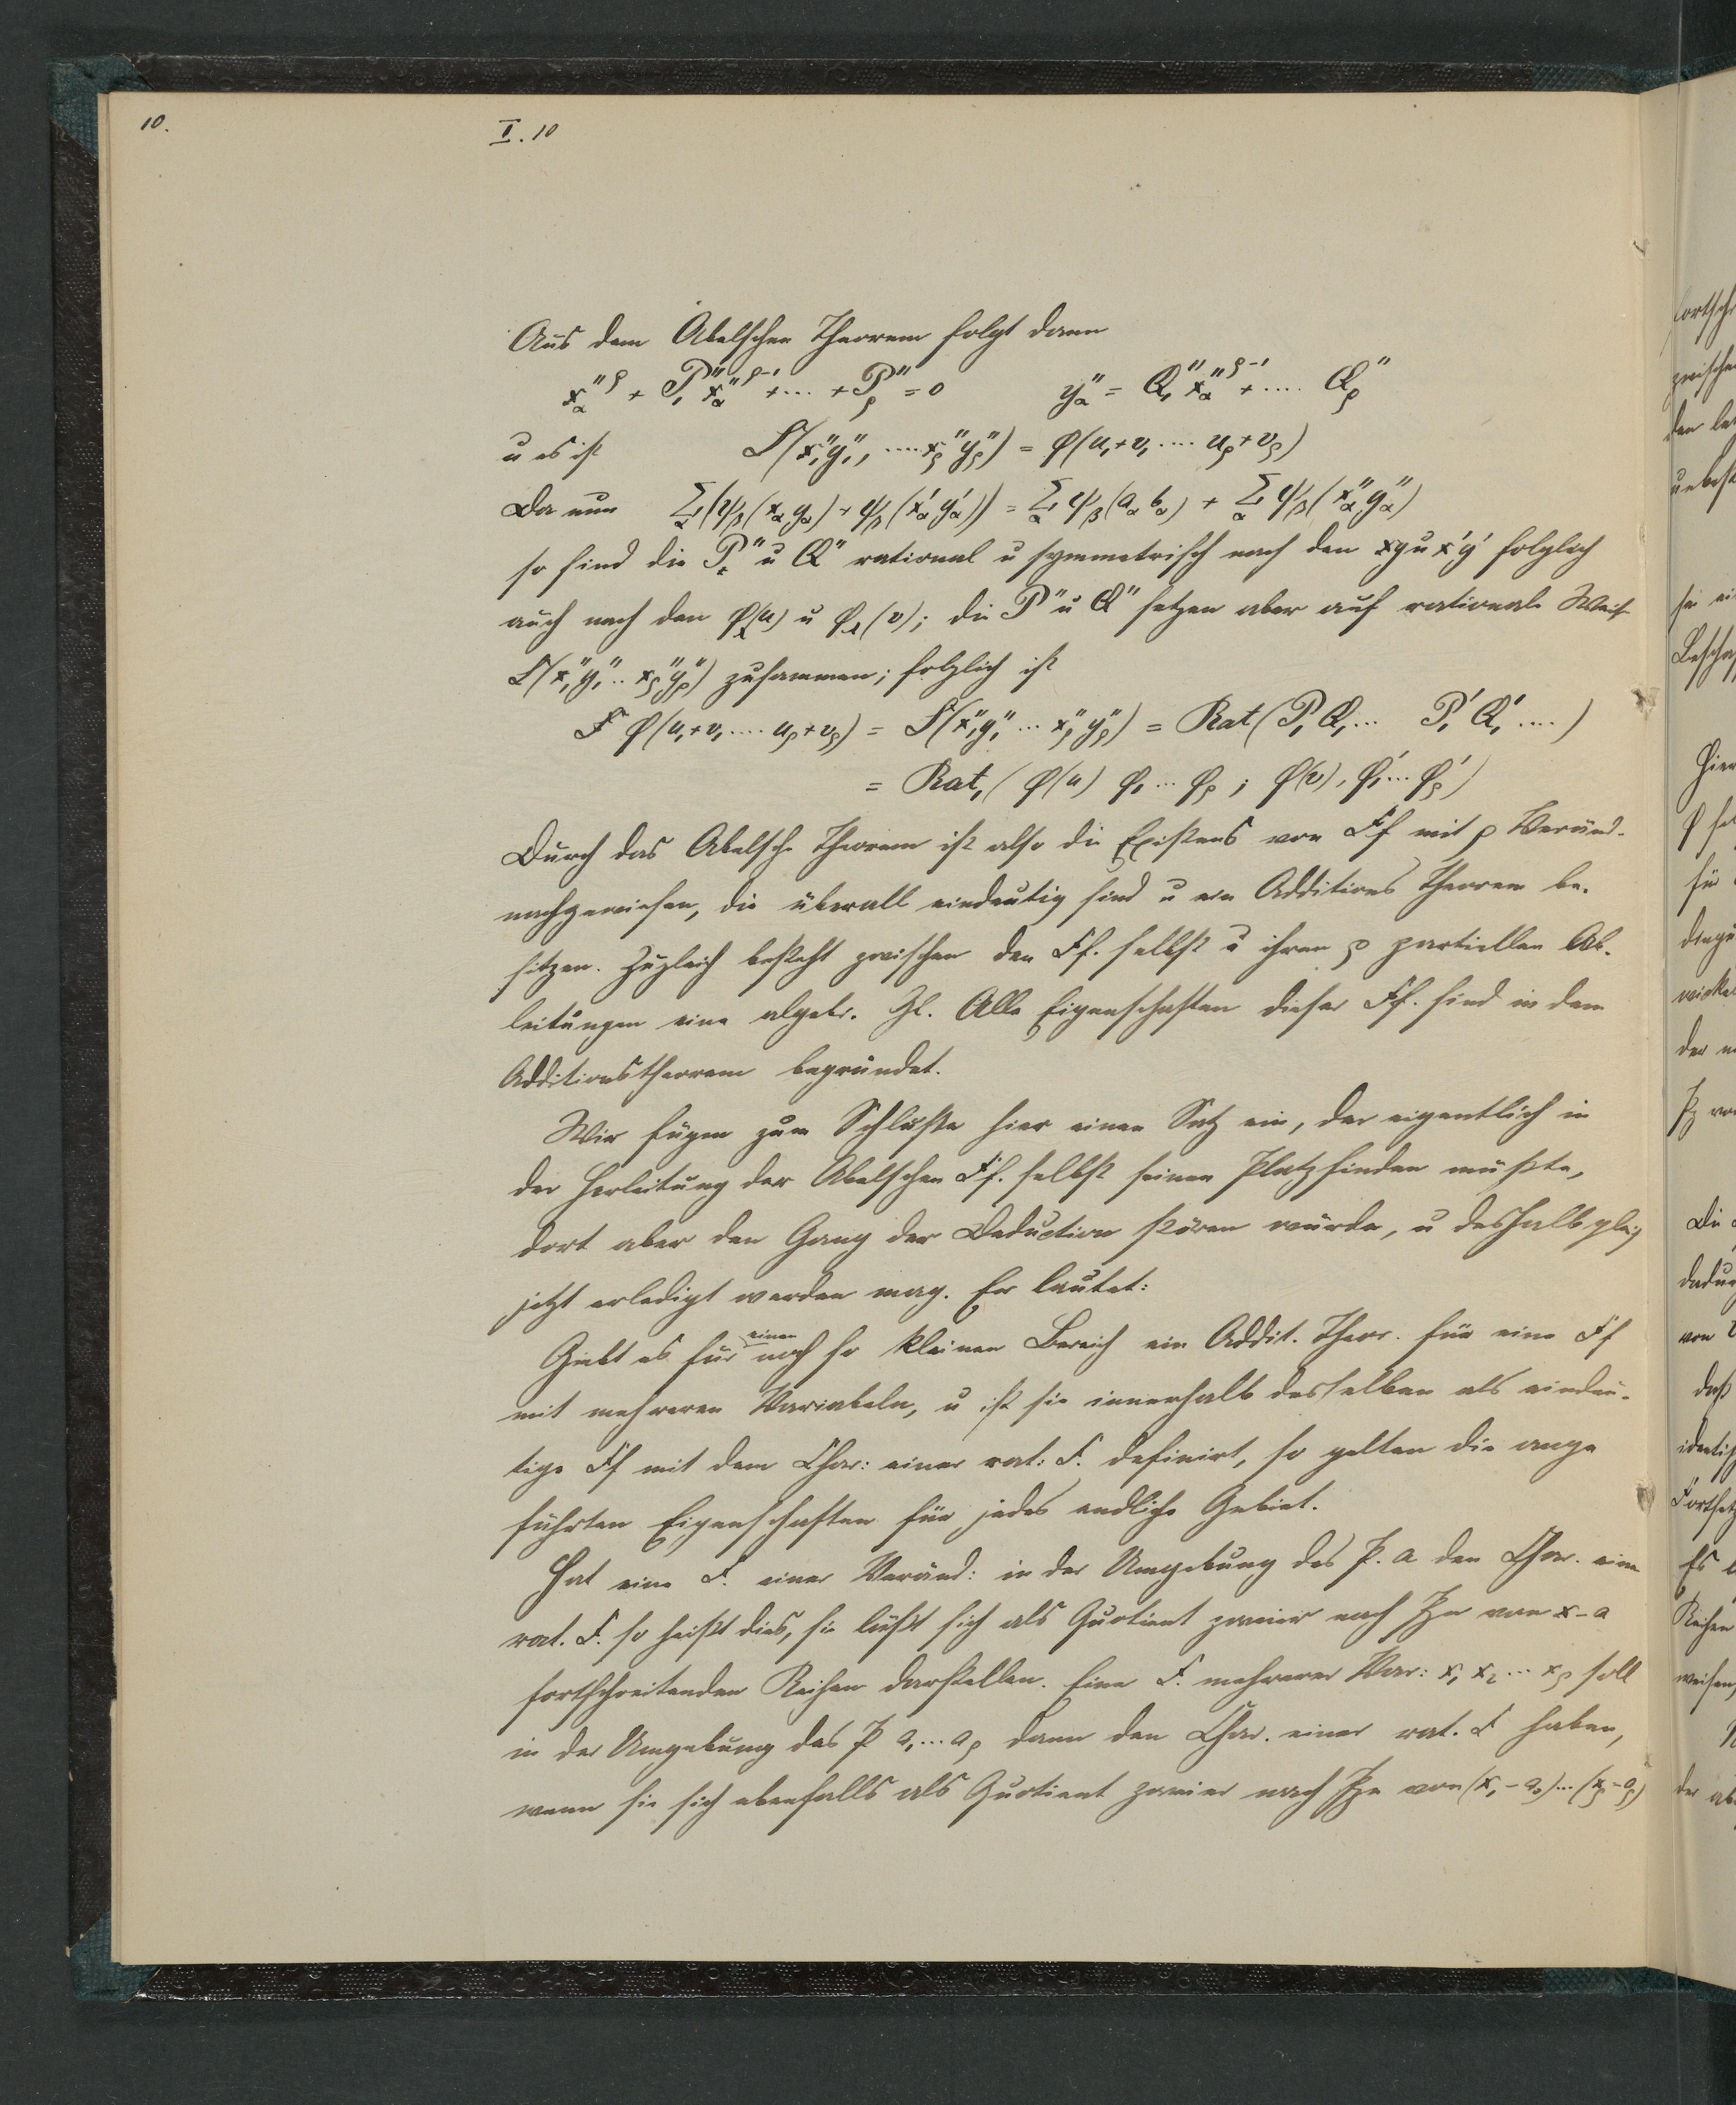 10.
I. 10
Aus dem Abelschen Theorem folgt dann
x''_α^ρ + P''_1 x''_α^{ρ-1} + .... + P''_ρ = 0   y''_α = Q''_1 x''_α^{ρ-1} + .... Q_ρ''
u es ist   S(x''_1 y''_1, .... x''_ρ y''_ρ) = φ(u_1+v_1 .... u_ρ+v_ρ)
Da nun   Σ_α (ψ_β(x_α y_α) + ψ_β(x'_α y'_α)) = Σ_α ψ_β(a_α b_α) + Σ_α ψ_β(x''_α y''_α)
so sind die P'' u Q'' rational u symmetrisch nach den xy u x'y' folglich
auch nach den φ_λ(u) u φ_λ(v); die P'' u Q'' setzen aber auf rationale Weise
S(x''_1 y''_1 .. x''_ρ y''_ρ) zusammen; folglich ist
φ(u_1+v_1 .... u_ρ+v_ρ) = S(x''_1 y''_1 ... x''_ρ y''_ρ) = Rat(P_1 Q_1 ...  P'_1 Q'_1 ....)
= Rat_1( φ(u) φ_1 ... φ_ρ ; φ(v), φ'_1 ... φ'_ρ )
Durch das Abelsche Theorem ist also die Existens von Ff mit ρ Veränd.
nachgewiesen, die überall eindeutig sind u ein Additions Theorem be-
sitzen. Zugleich besteht zwischen den Ff. selbst u ihren ρ partiellen Ab-
leitungen eine algebr. Gl. Alle Eigenschaften dieser Ff. sind in dem
Additionstheorem begründet.
Wir fügen zum Schlusse hier einen Satz ein, der eigentlich in
der Herleitung der Abelschen Ff. selbst seinen Platz finden müßte,
dort aber den Gang der Deduction stören würde, u deshalb
jetzt erledigt werden mag. Er lautet:
Giebt es für einen noch so kleinen Bereich ein Addit. Theor. für eine Ff
mit mehreren Variabeln, u ist sie innerhalb desselben als eindeu-
tige Ff mit dem Char: einer rat: F. definirt, so gelten die ange
führten Eigenschaften für jedes endliche Gebiet.
Hat eine F. einer Veränd: in der Umgebung des P. a den Char. einer
rat. F. so heißt dies, sie läßt sich als Quotient zweier nach Pzn von x-a
fortschreitenden Reihen darstellen. Eine F. mehrerer Var: x_1 x_2 ... x_ρ soll
in der Umgebung des P a_1 ... a_ρ dann den Char. einer rat. F haben,
wenn sie sich ebenfalls als Quotient zweier nach Pzn von (x_1-a_1)...(x_ρ-a_ρ)